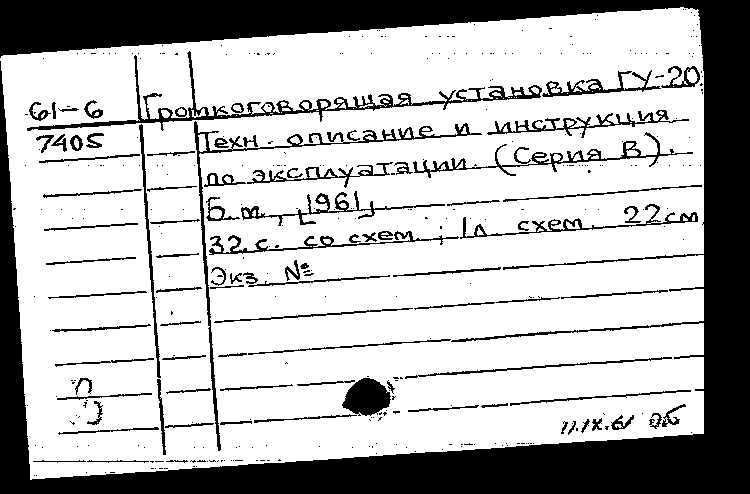 61-6 Громкоговорящая установка ГУ-20
7405 Техн. описание и инструкция
по эксплуатации. (Серия В).
Б.м., [1961].
32 с. со схем.; 1 л. схем. 22 см
Экз. №
11.IX.61